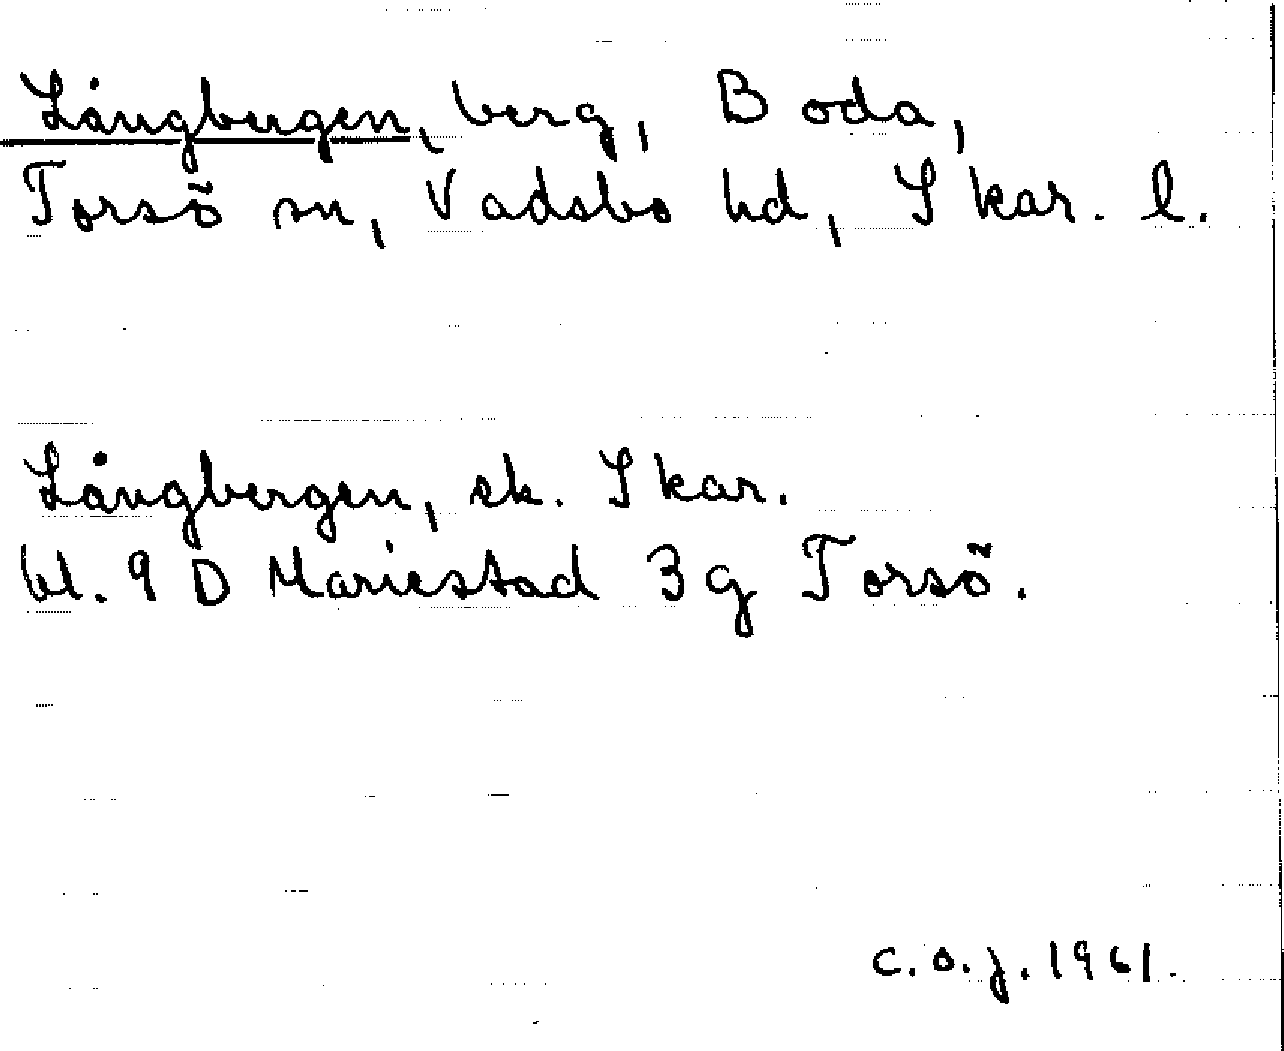 Långbergen, berg, Boda,
Torsö sn, Vadsbo hd, Skar. l.
Långbergen, ek. Skar.
bl. 9 D Mariestad 3 g Torsö.
C.O.J. 1961.